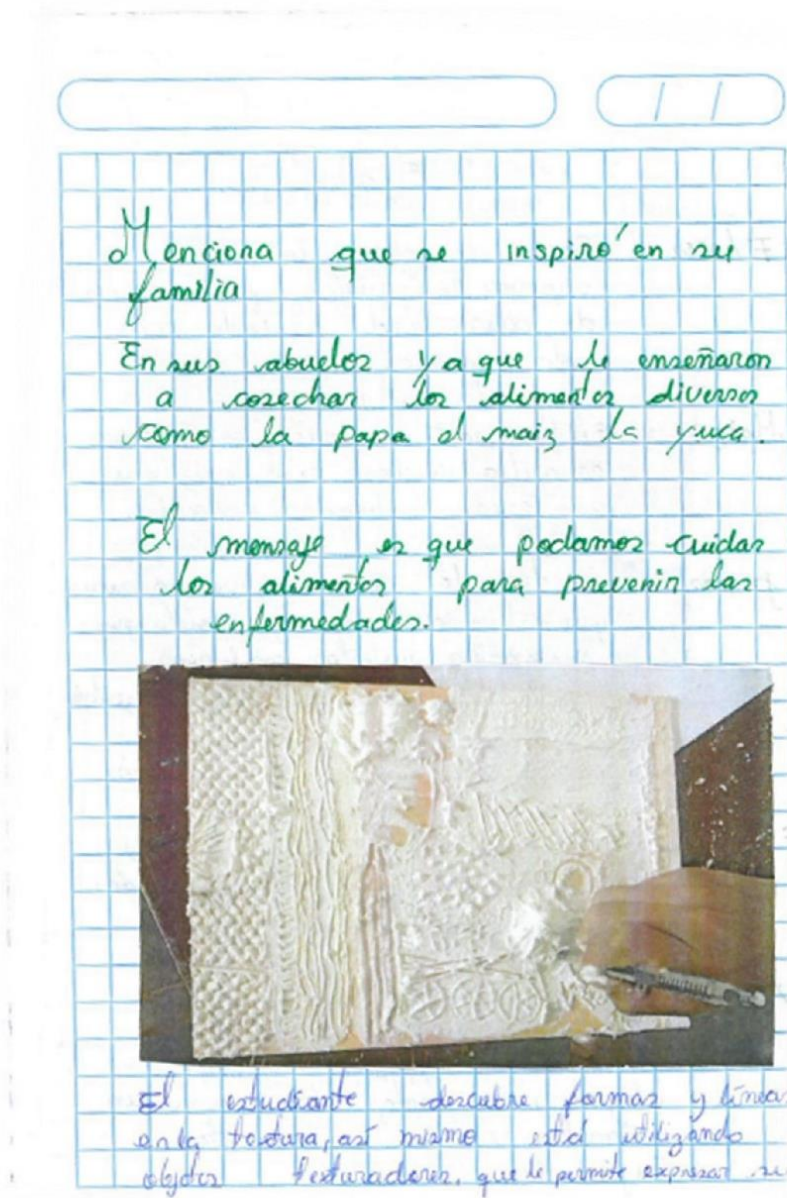 Menciona que se inspiró en su
familia
En sus abuelos ya que le enseñaron
a cosechar los alimentos diversos
como la papa el maiz la yuca.
El mensaje es que podamos cuidar
los alimentos para prevenir las
enfermedades.
El estudiante descubre formas y líneas
en la textura, así mismo está utilizando
objetos texturadores, que le permite expresar su